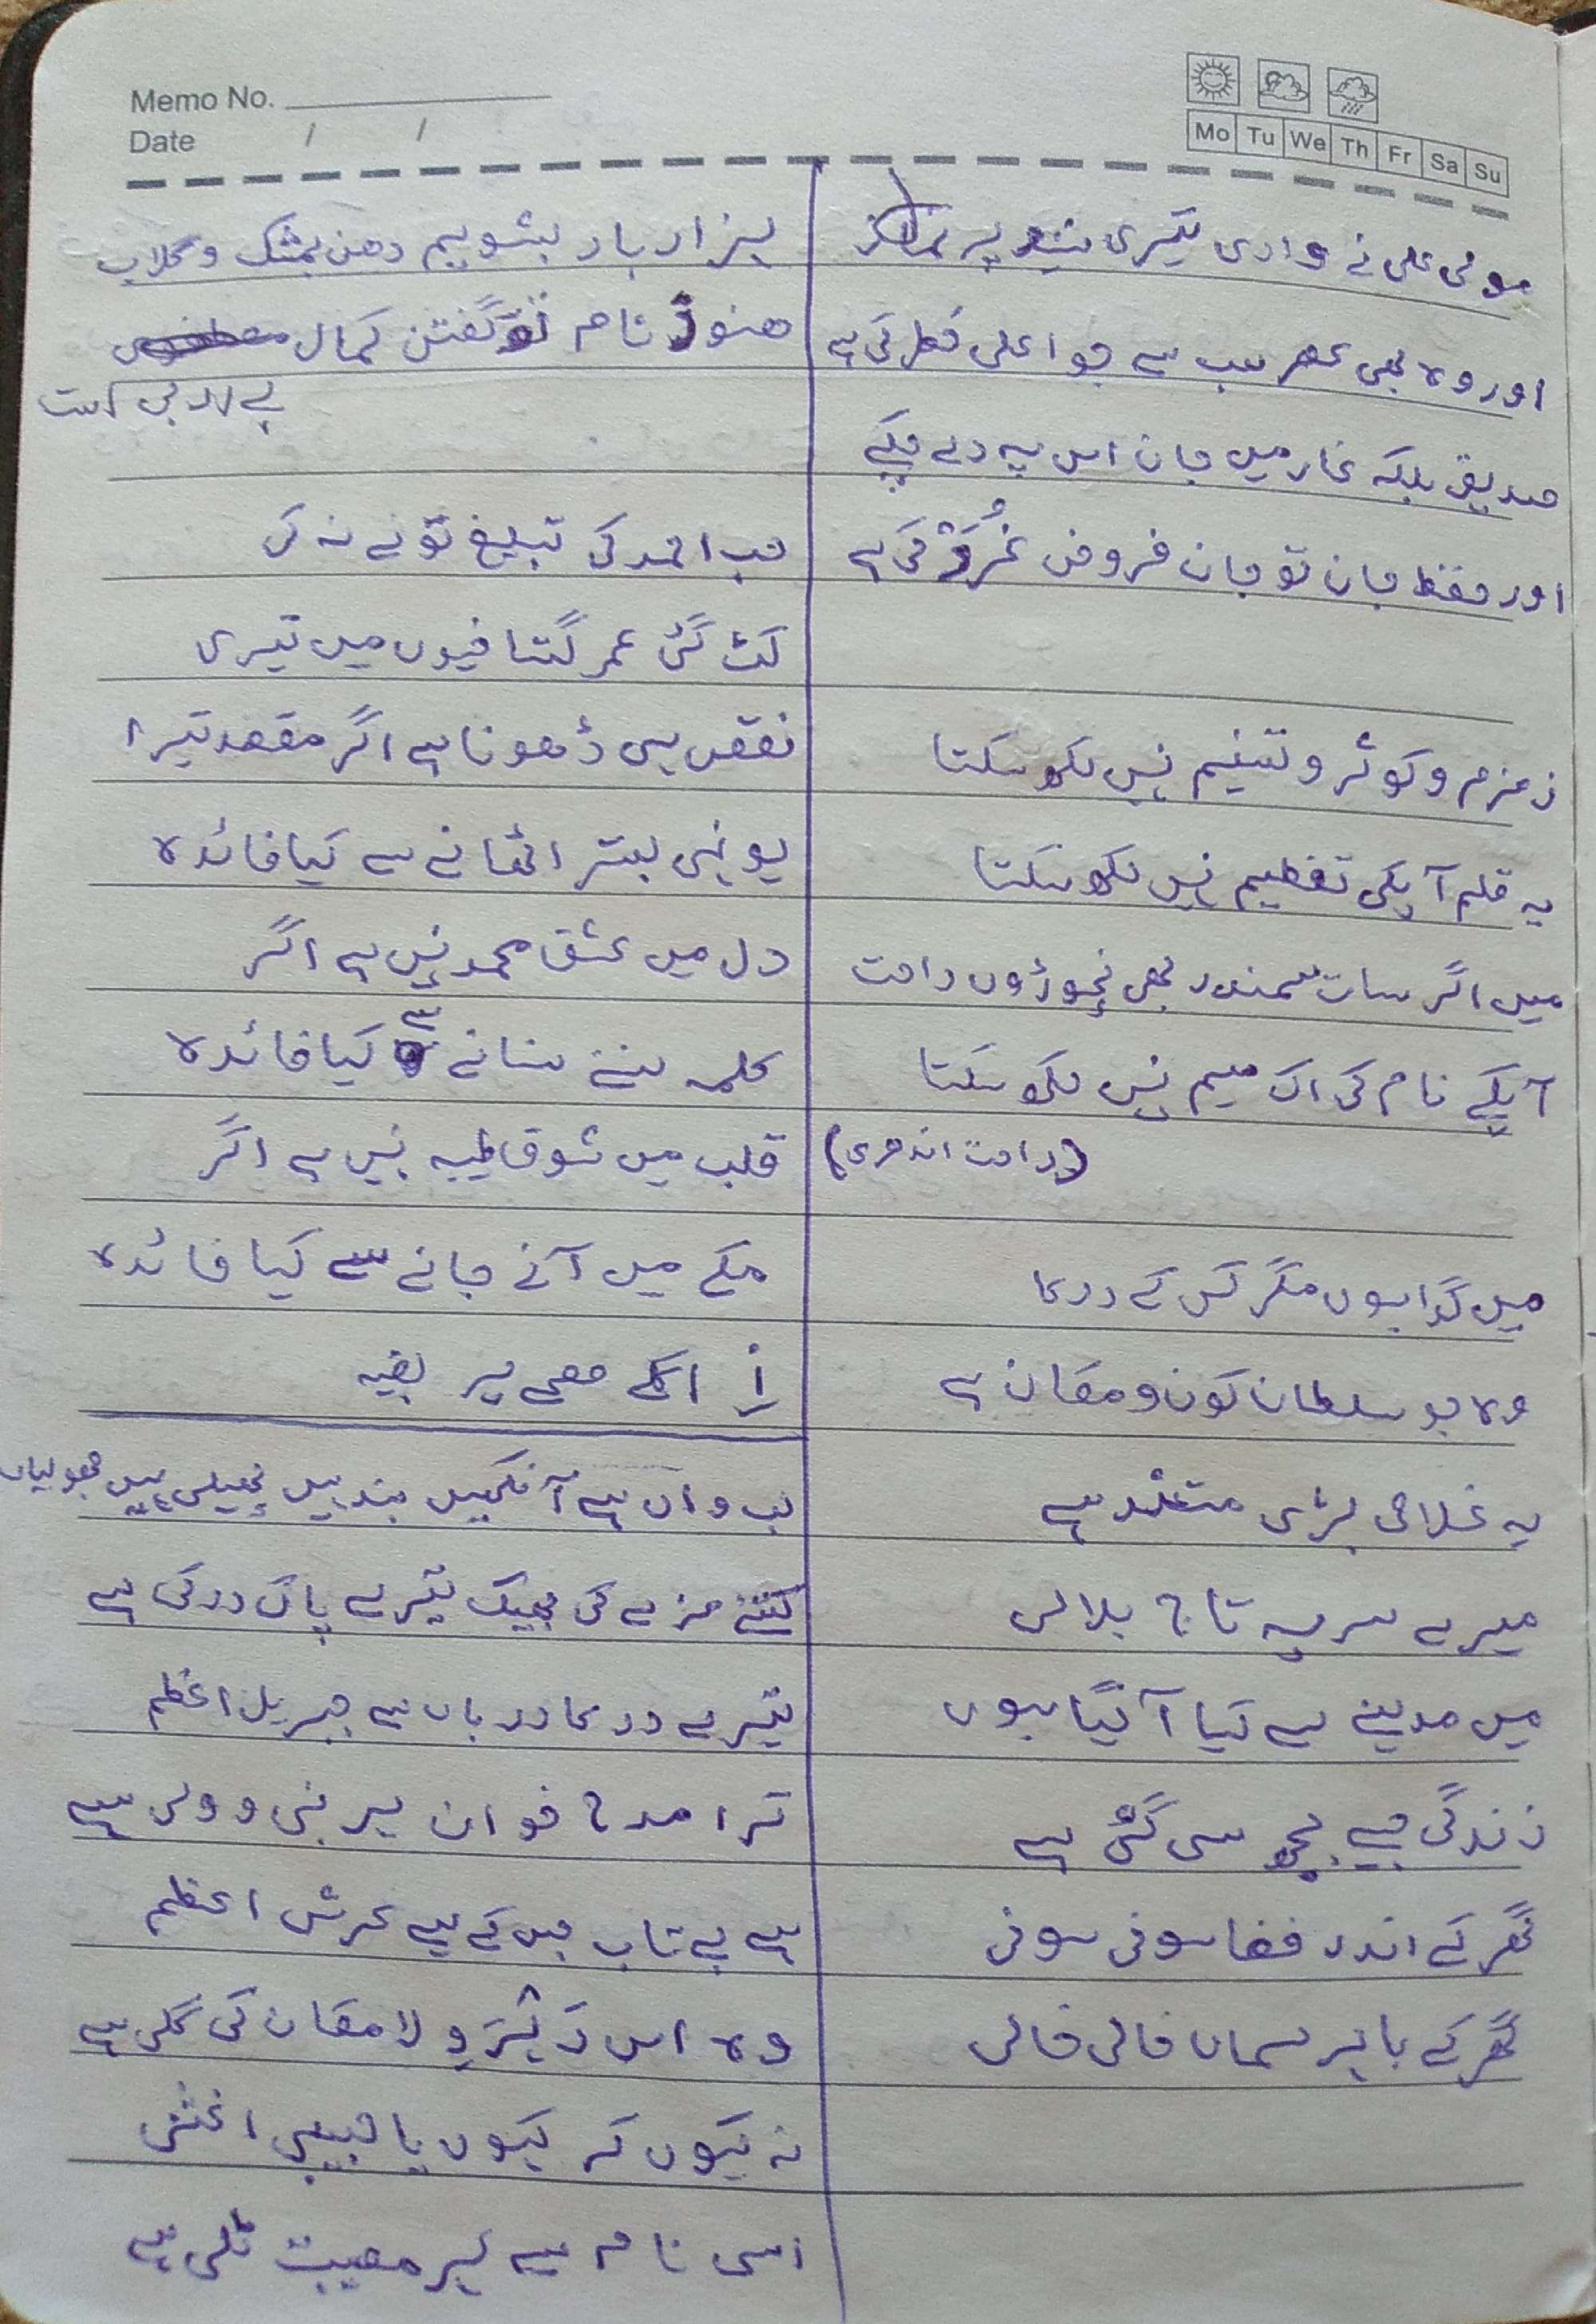 Memo No.
Date / /
Mo Tu We Th Fr Sa Su
مولی علی نے واری تیری نیند پر نماز
اور وہ بھی عصر سب سے جو اعلی خطر کی ہے
صدیق بلکہ غار میں جان اس پہ دے چکے
اور حفظ جان تو جان فروض غُرَر کی ہے
زمزم و کوثر و تسنیم نہیں لکھ سکتا
یہ قلم آپکی تعظیم نہیں لکھ سکتا
میں اگر سات سمندر بھی نچوڑوں راحت
آپکے نام کی اک میم نہیں لکھ سکتا
(راحت اندوری)
میں گدا ہوں مگر کس کے در کا
وہ جو سلطان کون و مکان ہے
یہ غلامی بڑی مستند ہے
میرے سر پہ تاج بلالی
میں مدینے سے کیا آ گیا ہوں
زندگی جیسے بجھ سی گئی ہے
گھر کے اندر فضا سونی سونی
گھر کے باہر سماں خالی خالی
ہزار بار بشویم دھن بمشک و گلاب
ھنوز نام تو گفتن کمال
بے ادبی است
حب احمد کی تبلیغ تو نے نہ کی
کٹ گئی عمر گستاخیوں میں تیری
نقص ہی ڈھونا ہے اگر مقصد تیرا
یونہی بستر اٹھانے سے کیا فائدہ
دل میں عشق محمد نہیں ہے اگر
کلمہ سننے سنانے سے کیا فائدہ
قلب میں شوق طیبہ نہیں ہے اگر
مکے میں آنے جانے سے کیا فائدہ
اگلے صفحے پر بقیہ
لب واں ہے آنکھیں بند ہیں پھیلی ہیں جھولیاں
کتنے مزے کی بھیک تیرے پاک در کی ہے
تیرے در کا درباں ہے جبریل اعظم
ترا مدح خوان ہر نبی و ولی ہے
ہے بے تاب جس کے لیے عرش اعظم
وہ اس رہرو لا مکان کی گلی ہے
نہ کیوں کر کہوں یا حبیبی اغثنی
اسی نام سے ہر مصیبت ٹلی ہے